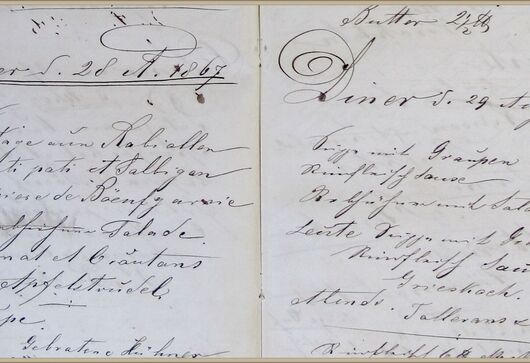 er d. 28 A. 1867
tage aux Kabiallen
ti pati et Salbigan
piese de Bäenfgarnie
Salade
nat et Cräutans
Apfelstrudel
pe.
Gebratene Hühner
Butter 2 1/2 ℔
Diner d. 29 A
Suppe mit Graupen
Rindfleisch Sause
Rebhühner mit Sala
Leute Suppe mit G
Rindfleisch Sau
Grieskoch.
Abends.
Rindfleisch 6 ℔